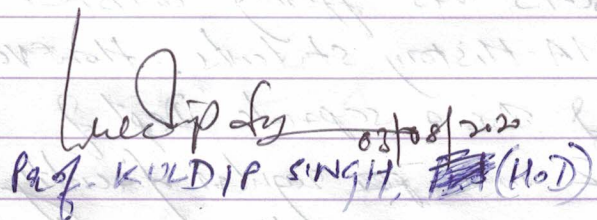 Kuldip Sg 03/08/2020
Prof. KULDIP SINGH, (HOD)